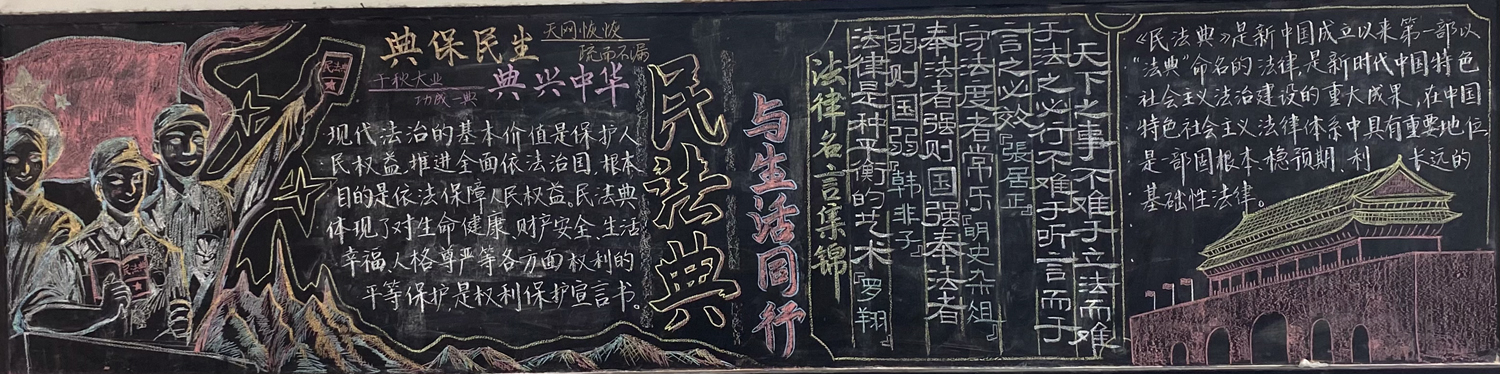 典保民生
天网恢恢
疏而不漏
千秋大业
功成一典
典兴中华
民法典
现代法治的基本价值是保护人
民权益,推进全面依法治国,根本
目的是依法保障人民权益。民法典
体现了对生命健康、财产安全、生活
幸福、人格尊严等各方面权利的
平等保护,是权利保护宣言书。
民法典
民法典
与生活同行
法律名言集锦
天下之事不难于立法而难
于法之必行不难于听之言而于
言之必效『張居正』
守法度者常乐『明史杂俎』
奉法者强则国强奉法者
弱则国弱『韩非子』
法律是种平衡的艺术『罗翔』
《民法典》是新中国成立以来第一部以
“法典”命名的法律,是新时代中国特色
社会主义法治建设的重大成果,在中国
特色社会主义法律体系中具有重要地位,
是部固根本、稳预期、利 长远的
基础性法律。